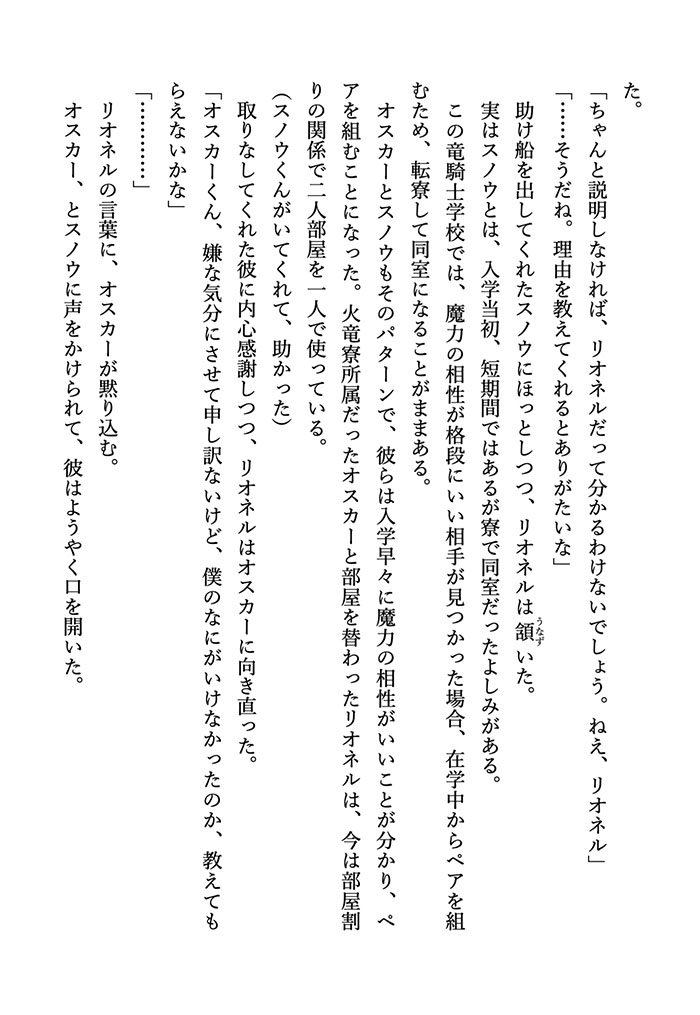 た。
「ちゃんと説明しなければ、リオネルだって分かるわけないでしょう。ねえ、リオネル」
「……そうだね。理由を教えてくれるとありがたいな」
助け船を出してくれたスノウにほっとしつつ、リオネルは頷いた。
うなず
実はスノウとは、入学当初、短期間ではあるが寮で同室だったよしみがある。
この竜騎士学校では、魔力の相性が格段にいい相手が見つかった場合、在学中からペアを組
むため、転寮して同室になることがままある。
オスカーとスノウもそのパターンで、彼らは入学早々に魔力の相性がいいことが分かり、ペ
アを組むことになった。火竜寮所属だったオスカーと部屋を替わったリオネルは、今は部屋割
りの関係で二人部屋を一人で使っている。
（スノウくんがいてくれて、助かった）
取りなしてくれた彼に内心感謝しつつ、リオネルはオスカーに向き直った。
「オスカーくん、嫌な気分にさせて申し訳ないけど、僕のなにがいけなかったのか、教えても
らえないかな」
「…………」
リオネルの言葉に、オスカーが黙り込む。
オスカー、とスノウに声をかけられて、彼はようやく口を開いた。